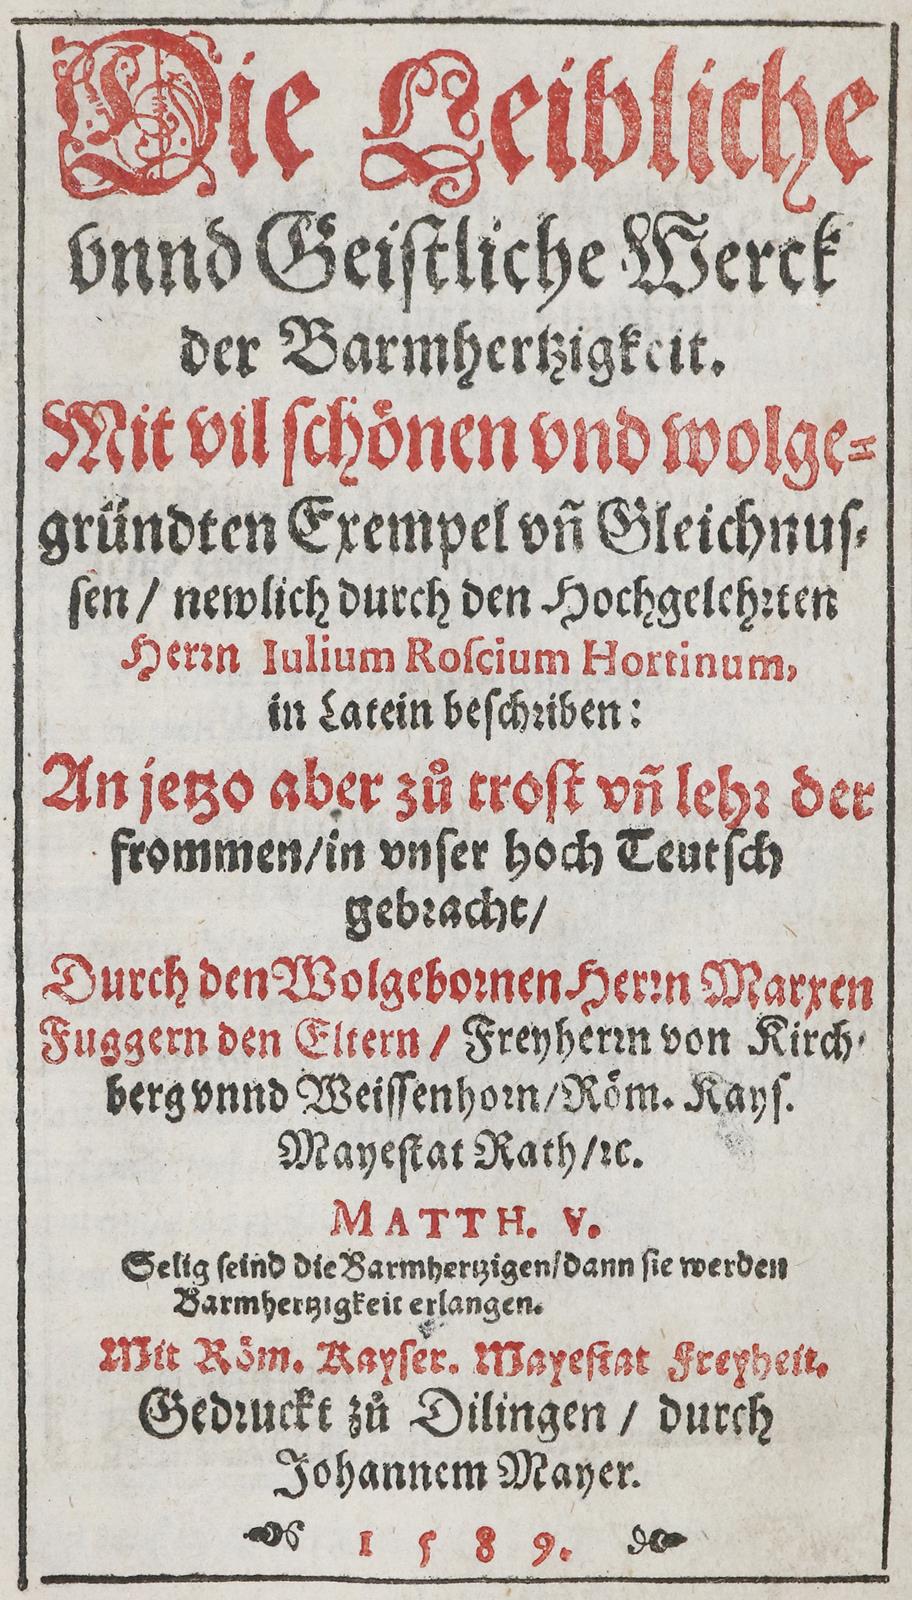 Die Leibliche
vnnd Geistliche Werck
der Barmhertzigkeit.
Mit vil schönen vnd wolge-
gründten Exempel vñ Gleichnus-
sen / newlich durch den Hochgelehrten
Herrn Iulium Roscium Hortinum,
in Latein beschriben:
An jetzo aber zů trost vñ lehr der
frommen/in vnser hoch Teutsch
gebracht/
Durch den Wolgebornen Herrn Marxen
Fuggern den Eltern / Freyherrn von Kirch-
berg vnnd Weissenhorn/Röm. Kays.
Mayestat Rath/ꝛc.
MATTH. V.
Selig seind die Barmhertzigen/dann sie werden
Barmhertzigkeit erlangen.
Mit Röm. Kayser. Mayestat Freyheit.
Gedruckt zů Dilingen / durch
Johannem Mayer.
1589.